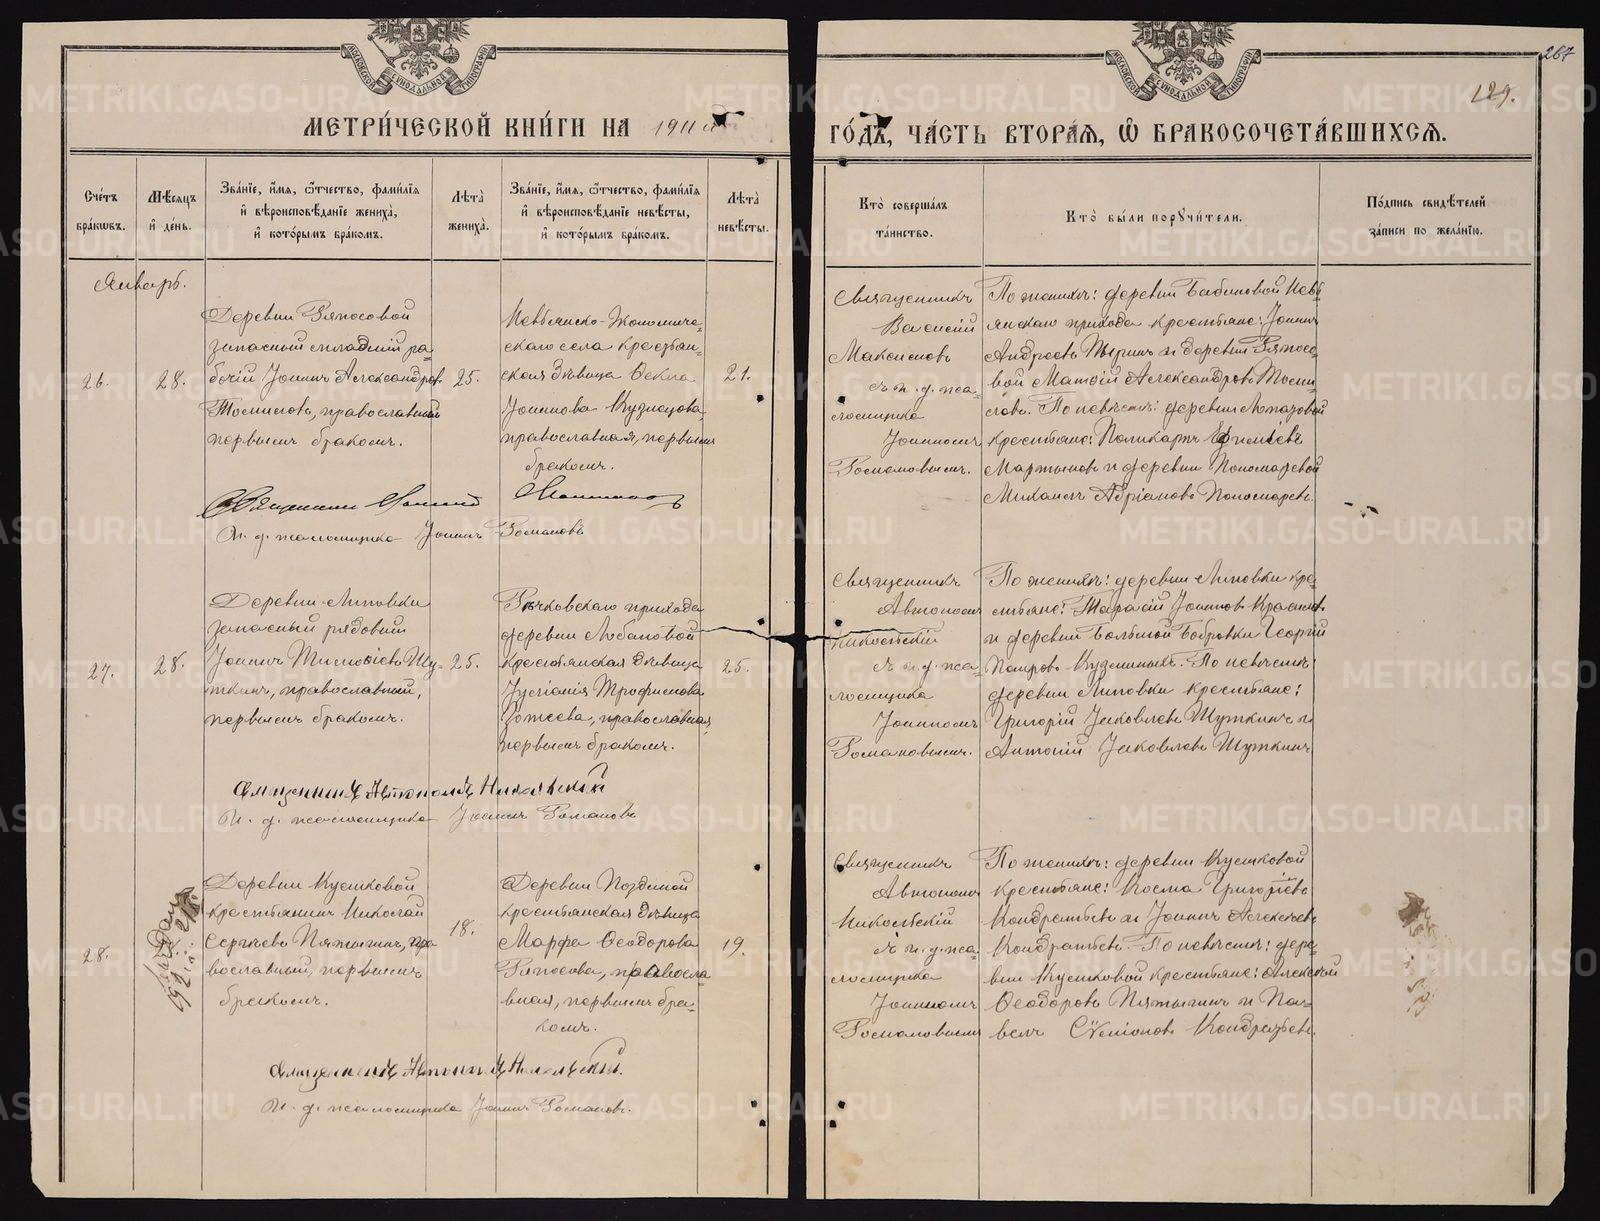 МОСКОВСКОЙ СѴНОДАЛЬНОЙ ТИПОГРАФІИ
МОСКОВСКОЙ СѴНОДАЛЬНОЙ ТИПОГРАФІИ
267
129.
МЕТРИ́ЧЕСКОЙ КНИ́ГИ НА 1911й
ГО́ДЪ, ЧА́СТЬ ВТОРА́Я, Ѽ БРАКОСОЧЕТА́ВШИХСЯ.
Сче́тъ бра́кѡвъ.
Мѣ́сяцъ и҆ де́нь.
Зва́нїе, и҆́мя, ѻ҆́тчество, фамі́лїя и҆ вѣроисповѣ́данїе жениха̀, и҆ кото́рымъ бра́комъ.
Лѣ́та жениха̀.
Зва́нїе, и҆́мя, ѻ҆́тчество, фамі́лїя и҆ вѣроисповѣ́данїе невѣ́сты, и҆ кото́рымъ бра́комъ.
Лѣ́та невѣ́сты.
Кто̀ соверша́лъ та́инство.
Кто̀ бы́ли порꙋчи́тели.
По́дпись свидѣ́телей за́писи по жела́нїю.
Январь.
26.
28.
Деревни Ряпосовой
запасный младшій ра-
бочій Іоаннъ Александров
Тосмисловъ, православный
первымъ бракомъ.
25.
Невьянско-Экономиче-
скаго села крестьян-
ская дѣвица Ѳекла
Іоаннова Кузнецова,
православная, первымъ
бракомъ.
21.
Священникъ
Василій
Макоиновъ
съ и. д. пса-
ломщика
Іоанномъ
Романовымъ.
По женихѣ: деревни Бабиновой Невь-
янскаго прихода крестьяне: Іоаннъ
Андреевъ Тыринъ и деревни Ряпосо-
вой Матѳій Александровъ Тосми-
словъ. По невѣстѣ: деревни Лопатовой
крестьяне: Поликарпъ Ефимовъ
Мартыновъ и деревни Пономаревой
Михаилъ Адріановъ Пономаревъ.
И. д. псаломщика Іоаннъ Романовъ
27.
28.
Деревни Липовки
запасный рядовый
Іоаннъ Тимоѳіевъ Шу-
ткинъ, православный,
первымъ бракомъ.
25.
Рѣчковскаго прихода
деревни Лобановой
крестьянская дѣвица
Іустинія Трофимова
Готеева, православная,
первымъ бракомъ.
25.
Священникъ
Автономъ
Никольскій
съ и. д. пса-
ломщика
Іоанномъ
Романовымъ.
По женихѣ: деревни Липовки кре-
стьяне: Тарасій Іоанновъ
и деревни Большой Бобровки Георгій
Петровъ Кузминыхъ. По невѣстѣ:
деревни Липовки крестьяне:
Григорій Іаковлевъ Шуткинъ и
Антоній Іаковлевъ Шуткинъ.
Священникъ Автономъ Никольскій
И. д. псаломщика Іоаннъ Романовъ
28.
Деревни Кушковой
крестьянинъ Николай
Сергѣевъ Пятыгинъ, пра-
вославный, первымъ
бракомъ.
18.
Деревни Поздиной
крестьянская дѣвица
Марфа Ѳеодорова
Ряпосова, правосла-
вная, первымъ бра-
комъ.
19.
Священникъ
Автономъ
Никольскій
съ и. д. пса-
ломщика
Іоанномъ
Романовымъ
По женихѣ: деревни Кушковой
крестьяне: Косма Григоріевъ
Кондратьевъ и Іоаннъ Алексѣевъ
Кондратьевъ. По невѣстѣ: дере-
вни Кушковой крестьяне: Алексѣй
Ѳеодоровъ Пятыгинъ и Па-
велъ Сѵмеоновъ Кондратьевъ.
Священникъ Автономъ Никольскій.
И. д. псаломщика Іоаннъ Романовъ.
METRIKI.GASO-URAL.RU